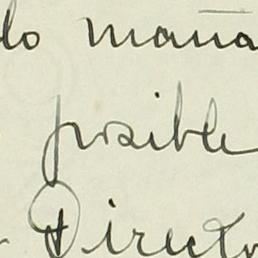 lo maña
posible
Directo